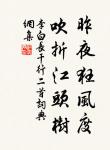 昨夜狂風度
吹折江頭樹
李白長干行二首詞典
網集